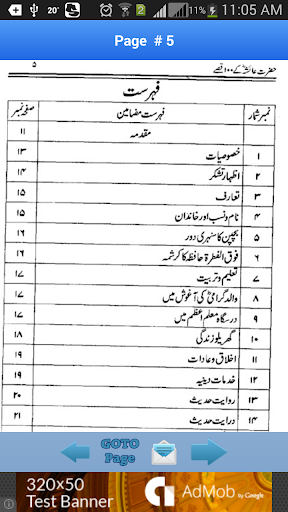 20°
11:05 AM
Page # 5
حضرت عائشہؓ کے ۱۰۰ قصے
۵
فہرست
نمبر شمار فہرست مضامین صفحہ نمبر
مقدمہ ۱۱
۱ خصوصیات ۱۳
۲ اظہار تشکر ۱۴
۳ تعارف ۱۵
۴ نام و نسب اور خاندان ۱۵
۵ بچپن کا سنہری دور ۱۶
۶ فوق الفطرۃ حافظہ کا کرشمہ ۱۶
۷ تعلیم و تربیت ۱۷
۸ والد گرامیؓ کی آغوش میں ۱۷
۹ درسگاہ معلم اعظم میں ۱۷
۱۰ گھریلو زندگی ۱۸
۱۱ اخلاق و عادات ۱۸
۱۲ خدمات دینیہ ۱۹
۱۳ روایت حدیث ۲۰
۱۴ درایت حدیث ۲۱
GOTO
Page
320x50
Test Banner
AdMob by Google